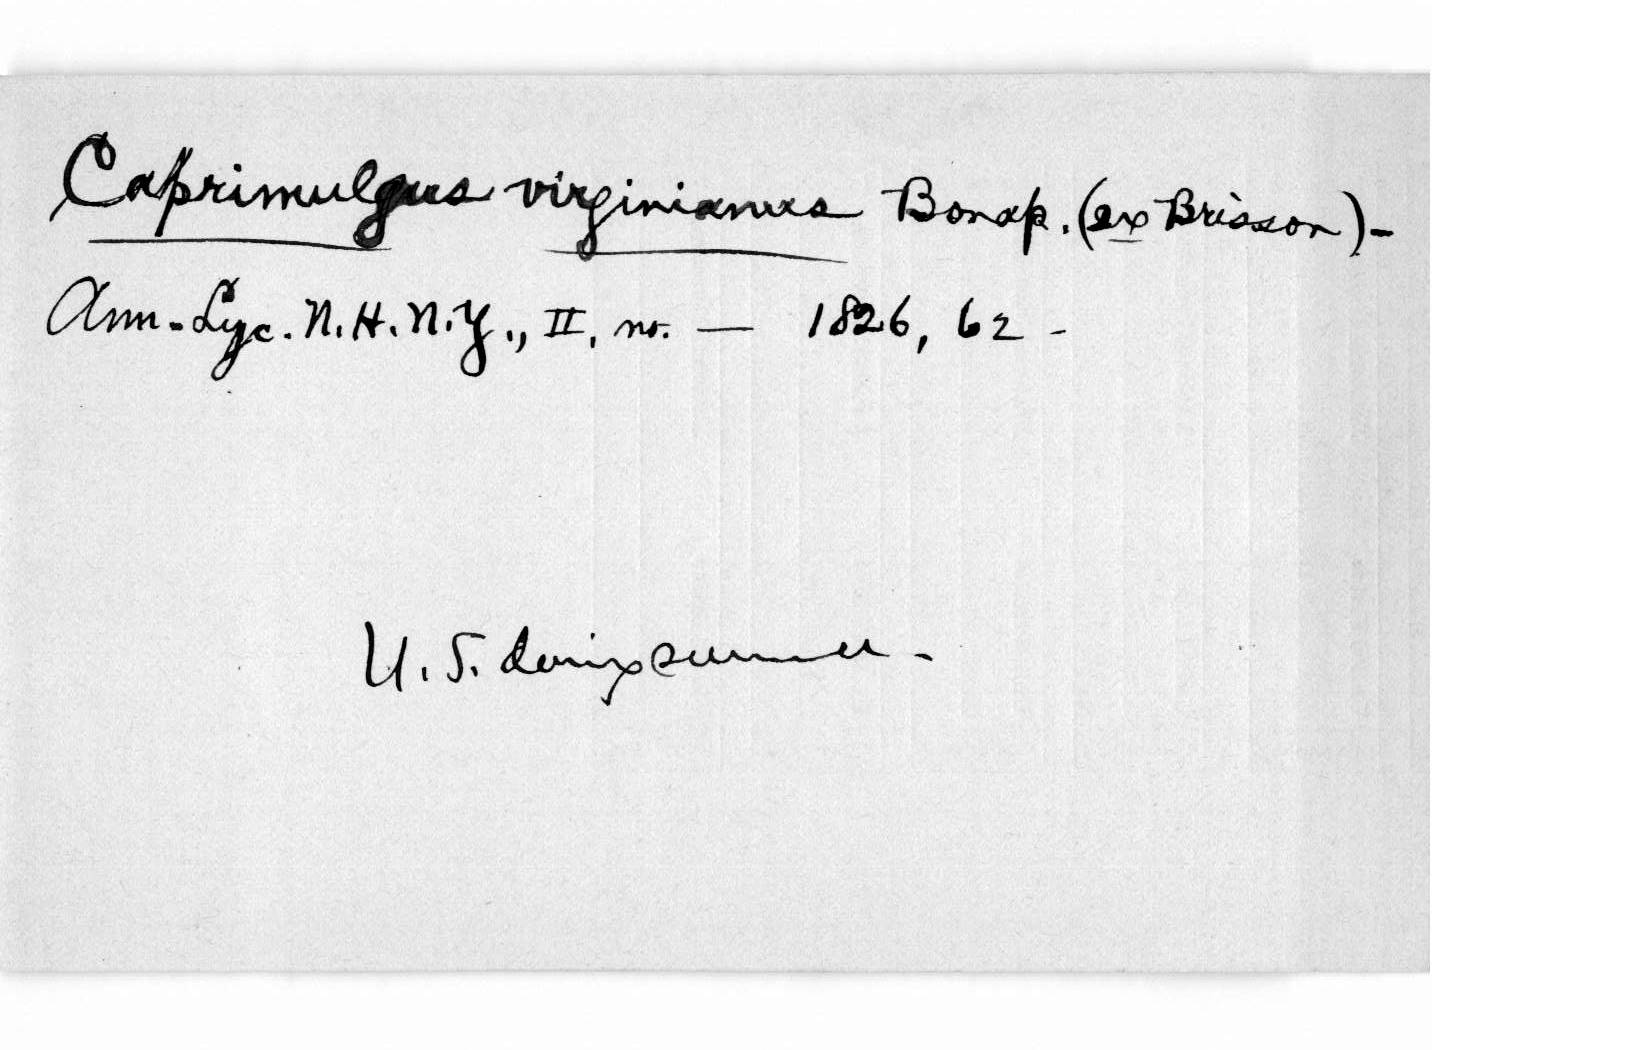 Caprimulgus virginianus Bonap. (ex Brisson) -
Ann. Lyc. N.H. N.Y., II, no. — 1826, 62 -
U.S. during summer -